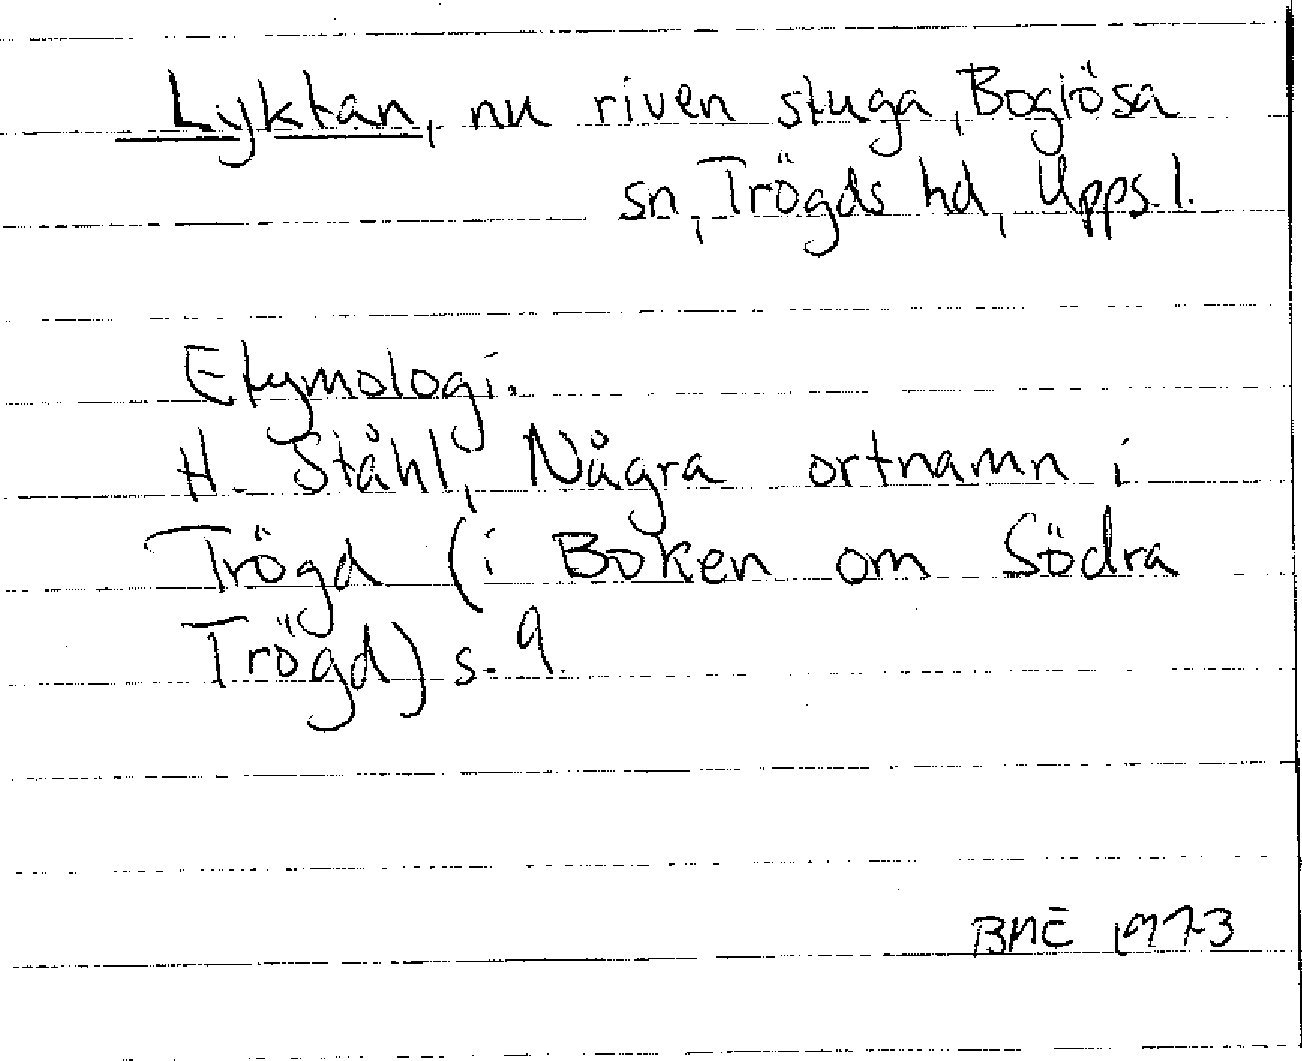 Lyktan, nu riven stuga, Boglösa
sn, Trögds hd, Upps. l.
Etymologi.
H. Ståhl, Några ortnamn i
Trögd (i Boken om Södra
Trögd) s. 9.
BME 1973